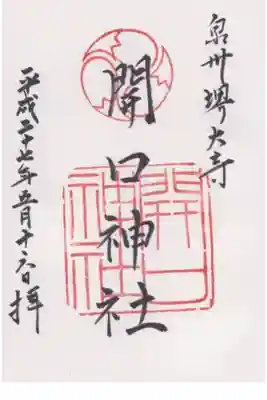 泉州堺大寺
開口神社
開口
神社
平成二十七年五月十六日拝